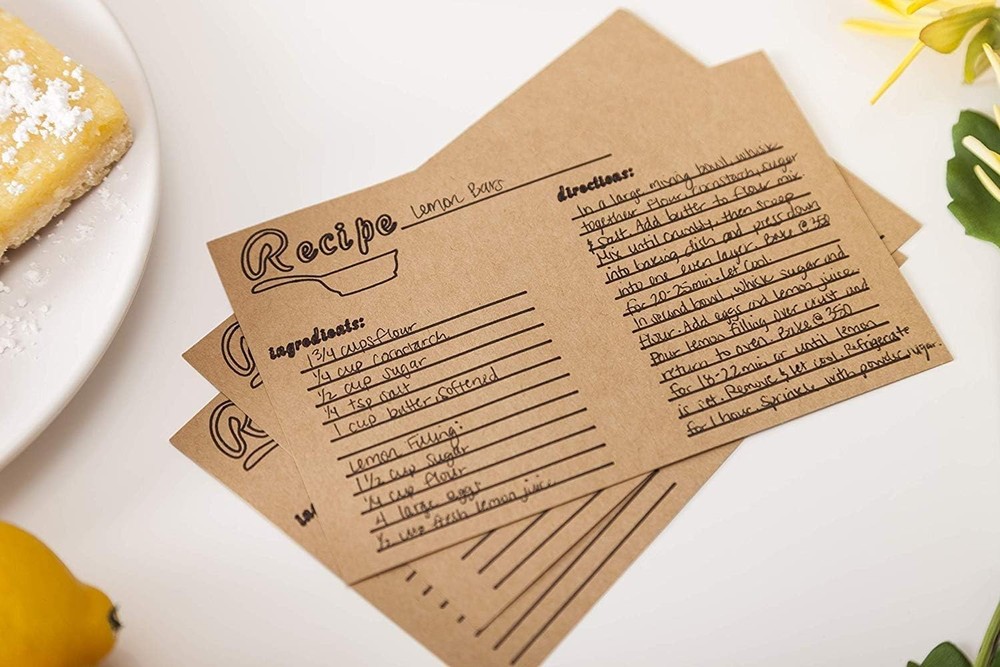 Recipe Lemon Bars
ingredients:
1 3/4 cups flour
1/4 cup cornstarch
1/2 cup sugar
1/4 tsp salt
1 cup butter, softened
Lemon Filling:
1 1/2 cup sugar
1/4 cup flour
4 large eggs
1/2 cup fresh lemon juice
directions:
In a large mixing bowl, whisk
together flour, cornstarch, sugar
& Salt. Add butter to flour mix.
Mix until crumbly, then scoop
into baking dish and press down
into one even layer. Bake @ 350
for 20-25min. Let cool.
In second bowl, whisk sugar and
flour. Add eggs and lemon juice.
Pour lemon filling over crust and
return to oven. Bake @ 350
for 18-22 min or until lemon
is set. Remove & let cool. Refrigerate
for 1 hour. Sprinkle with powder sugar.